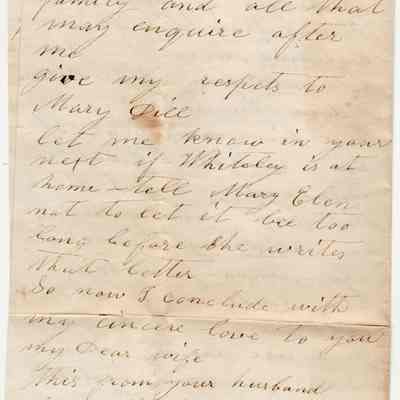 family and all that
may enquire after
me
give my respets to
Mary Dill
let me know in your
next if Whiteley is at
home - tell Mary Elen
not to let it bee too
long before she writes
that letter
So now I conclude with
my cincere love to you
my Dear wife
this from your husband